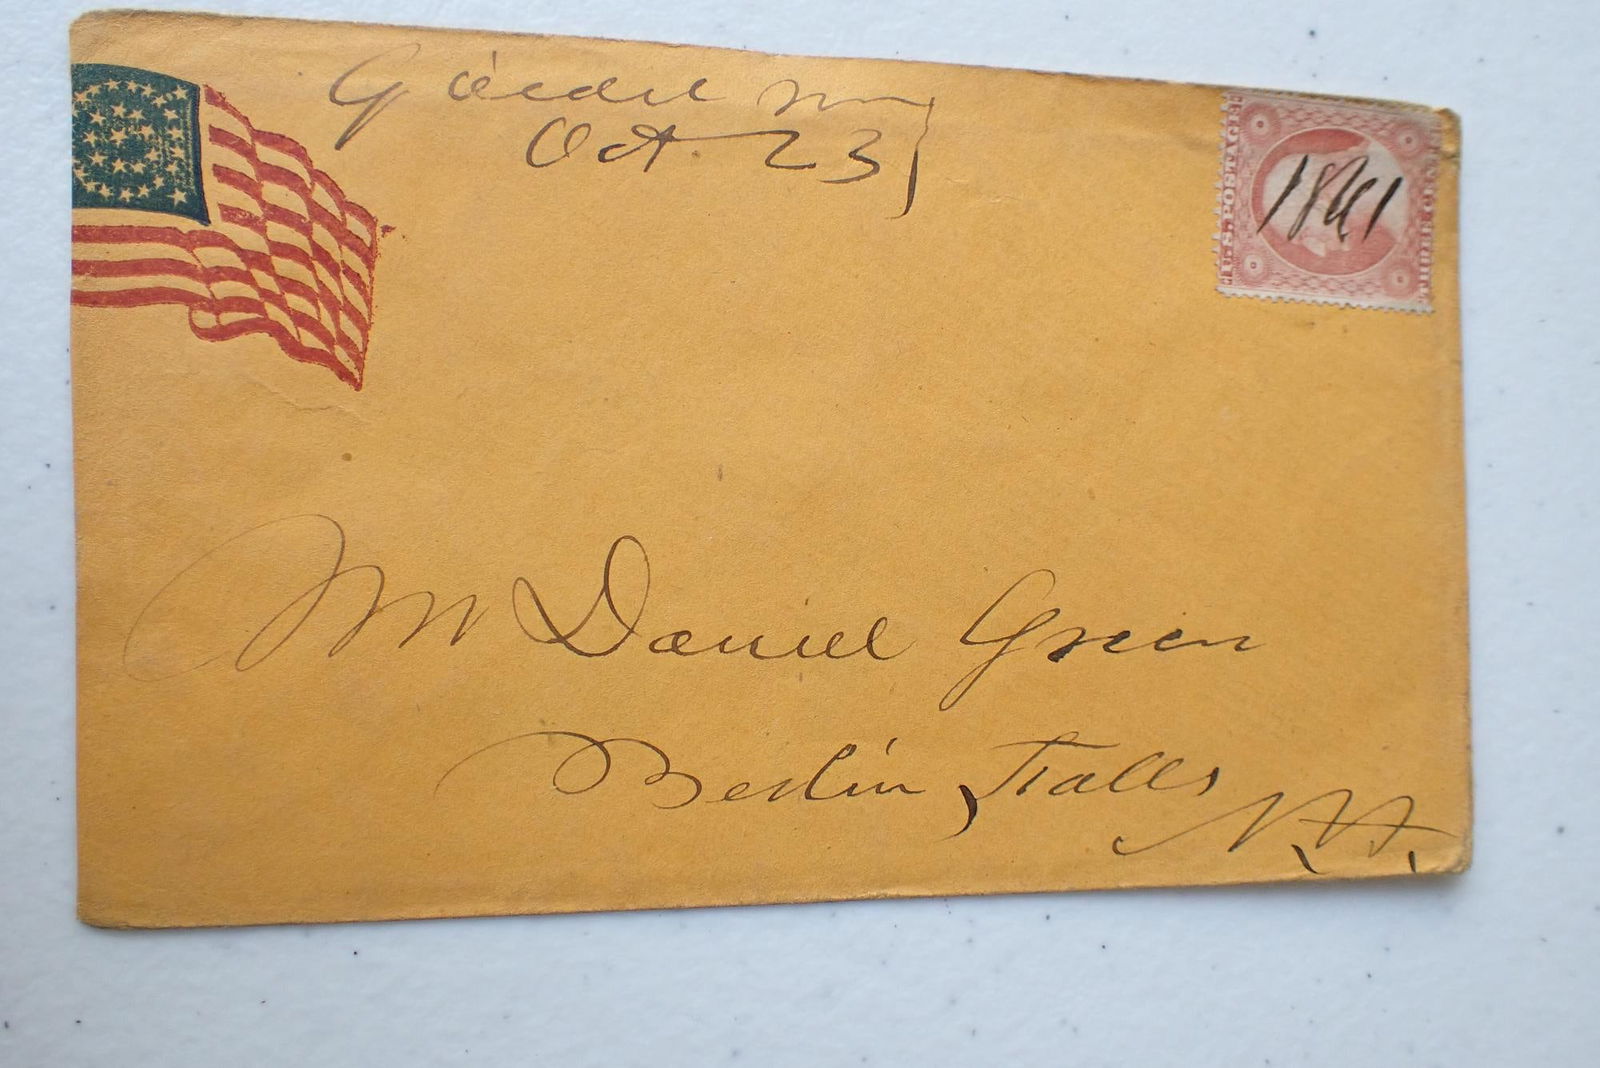 Gilead Me
Oct 23
U.S. POSTAGE
THREE CENTS
1861
Mr Daniel Green
Berlin, Falls
N.H.